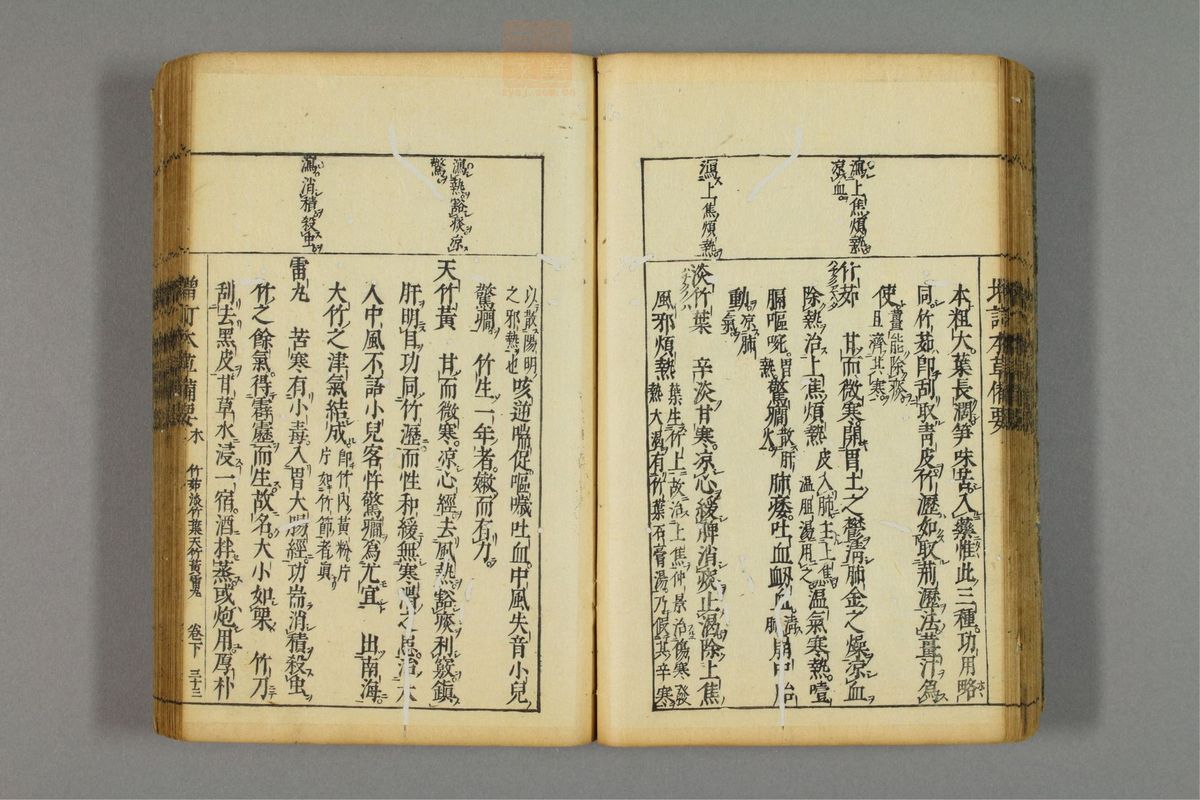 瀉上焦煩熱
涼血
瀉上焦煩熱
本粗大葉長濶笋味苦入藥惟此三種功用略
同竹茹卽刮取靑皮竹瀝如取荊瀝法薑汁爲
使
薑能除痰
且齊其寒
竹茹 甘而微寒開胃土之鬱淸肺金之燥涼血
除熱治上焦煩熱
皮入肺主上焦
溫膽湯用之
溫氣寒熱噎
膈嘔啘
胃熱
驚癎
散肝火
肺痿吐血衂血
崩中胎
動
涼肺氣
淡竹葉 辛淡甘寒涼心緩脾消痰止渴除上焦
風邪煩熱
葉生竹上故治上焦仲景治傷寒發
熱大渴有竹葉石膏湯乃假其辛寒
增訂本草備要
瀉熱豁痰涼
驚
瀉消積殺虫
以散陽明
之邪熱也
咳逆喘促嘔噦吐血中風失音小兒
驚癎 竹生一年者嫩而有力
天竹黃 甘而微寒涼心經去風熱豁痰利竅鎭
肝明目功同竹瀝而性和緩無寒滑之患治大
人中風不語小兒客忤驚癎爲尤宜 出南海
大竹之津氣結成
卽竹內黃粉片
片如竹節者眞
雷丸 苦寒有小毒入胃大腸經功耑消積殺虫
竹之餘氣得霹靂而生故名大小如栗 竹刀
刮去黑皮甘草水浸一宿酒拌蒸或炮用厚朴
增訂本草備要 木 竹茹淡竹葉天竹黃雷丸 卷下 三十三